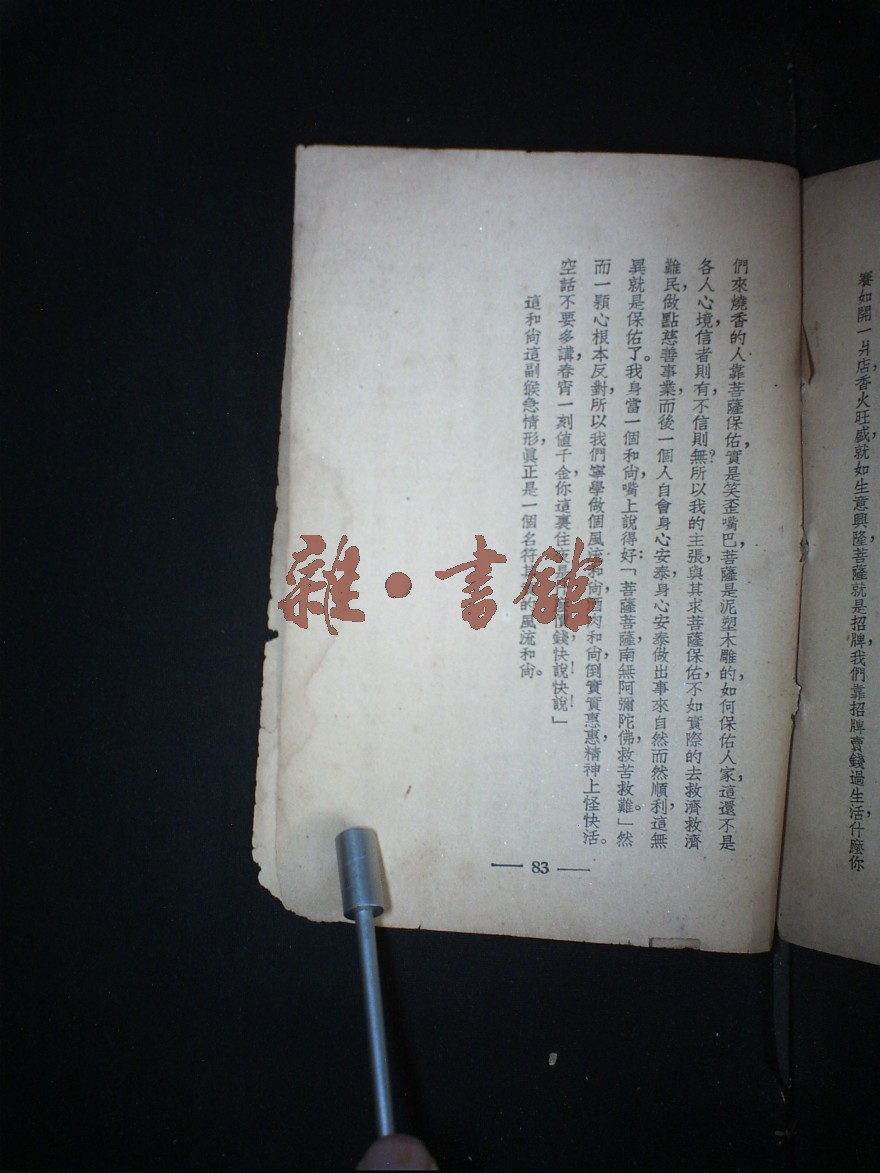 寮如開一爿店，香火旺盛，就如生意興隆，菩薩就是招牌，我們靠招牌賣錢過生活，什麼你
們來燒香的人靠菩薩保佑，實是笑歪嘴巴，菩薩是泥塑木雕的，如何保佑人家，這還不是
各人心境，信者則有，不信則無？所以我的主張，與其求菩薩保佑，不如實際的去救濟救濟
難民，做點慈善事業，而後一個人自會身心安泰，身心安泰，做出事來自然而然順利，這無
異就是保佑了。我身當一個和尙，嘴上說得好：「菩薩菩薩，南無阿彌陀佛，救苦救難。」然
而一顆心根本反對，所以我們寧學做個風流和尙，酒肉和尙，倒實實惠惠，精神上怪快活。
空話不要多講，春宵一刻値千金，你這裏住夜是價錢，快說！快說！」
這和尙這副猴急情形，眞正是一個名符其的風流和尙。
— 83 —
雜·書館